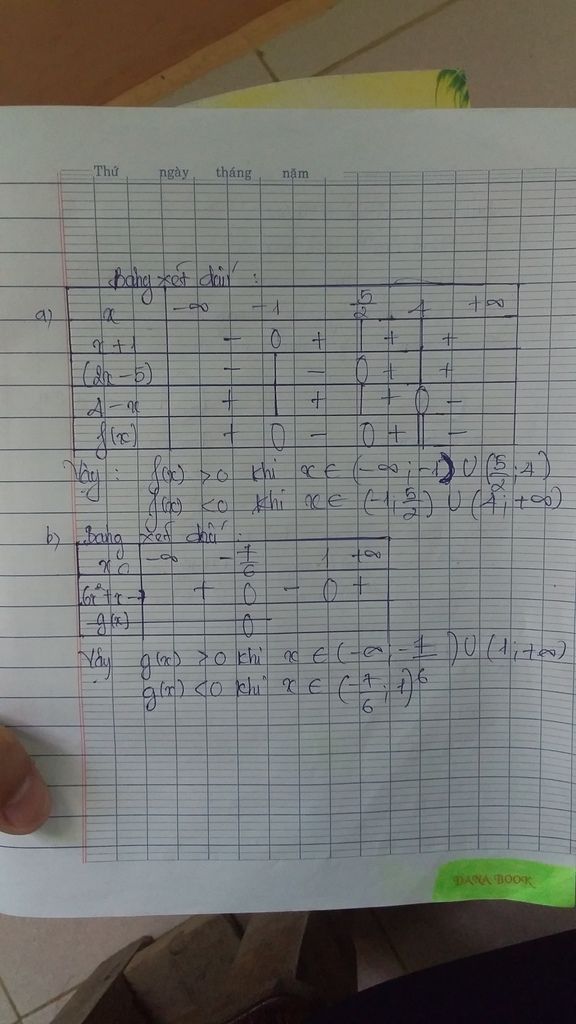 Thứ ngày tháng năm
Bảng xét dấu :
a) x -∞ -1 5/2 4 +∞
x+1 - 0 + | + | +
(2x-5) - | - 0 + | +
4-x + | + | + 0 -
f(x) + 0 - 0 + | -
Vậy : f(x) >0 khi x ∈ (-∞;-1) ∪ (5/2;4)
f(x) <0 khi x ∈ (-1;5/2) ∪ (4;+∞)
b) Bảng xét dấu :
x -∞ -7/6 1 +∞
6x²+x-7 + 0 - 0 +
g(x) 0
Vậy g(x) >0 khi x ∈ (-∞;-7/6) ∪ (1;+∞)
g(x) <0 khi x ∈ (-7/6;1)
DANA BOOK